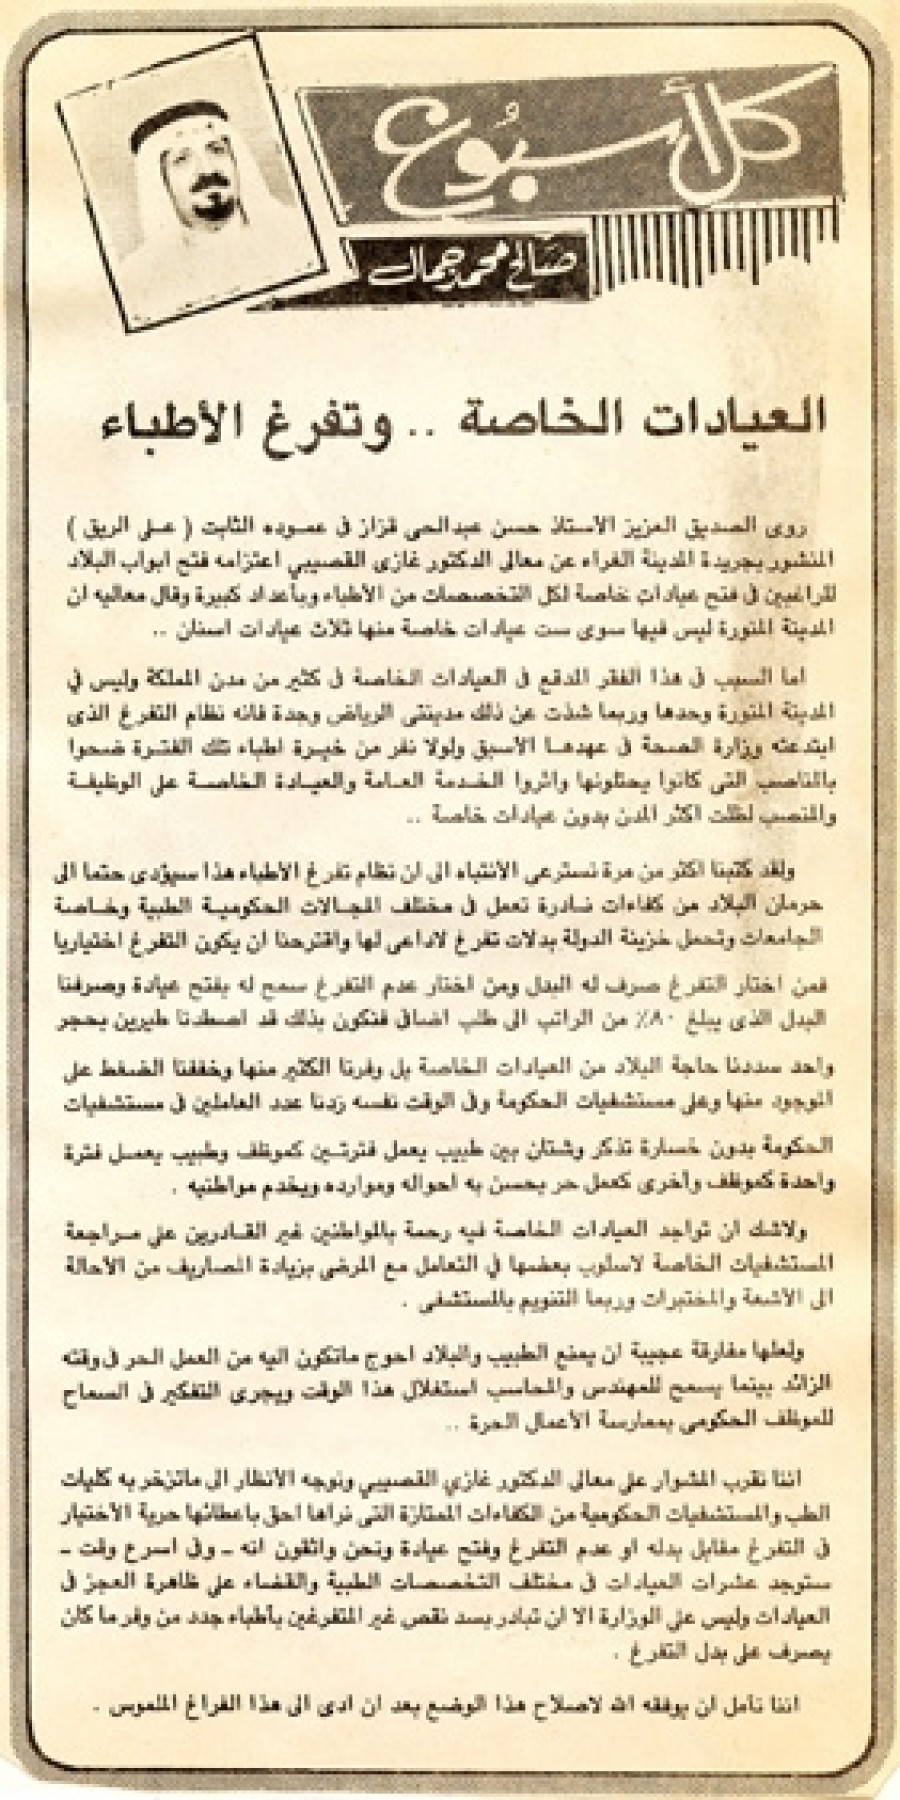 كل أسبوع
صالح محمد جمال
العيادات الخاصة .. وتفرغ الأطباء
روى الصديق العزيز الأستاذ حسن عبدالحى قزاز فى عموده الثابت ( على الريق )
المنشور بجريدة المدينة الغراء عن معالى الدكتور غازى القصيبي اعتزامه فتح ابواب البلاد
للراغبين فى فتح عيادات خاصة لكل التخصصات من الأطباء وبأعداد كبيرة وقال معاليه ان
المدينة المنورة ليس فيها سوى ست عيادات خاصة منها ثلاث عيادات اسنان ..
اما السبب فى هذا الفقر المدقع فى العيادات الخاصة فى كثير من مدن المملكة وليس في
المدينة المنورة وحدها وربما شذت عن ذلك مدينتى الرياض وجدة فانه نظام التفرغ الذى
ابتدعته وزارة الصحة فى عهدها الأسبق ولولا نفر من خيرة اطباء تلك الفترة ضحوا
بالمناصب التى كانوا يحتلونها واثروا الخدمة العامة والعيادة الخاصة على الوظيفة
والمنصب لظلت اكثر المدن بدون عيادات خاصة ..
ولقد كتبنا اكثر من مرة نسترعى الأنتباه الى ان نظام تفرغ الأطباء هذا سيؤدى حتما الى
حرمان البلاد من كفاءات نادرة تعمل فى مختلف المجالات الحكومية الطبية وخاصة
الجامعات وتحمل خزينة الدولة بدلات تفرغ لاداعى لها واقترحنا ان يكون التفرغ اختياريا
فمن اختار التفرغ صرف له البدل ومن اختار عدم التفرغ سمح له بفتح عيادة وصرفنا
البدل الذى يبلغ ٨٠٪ من الراتب الى طلب اضافى فنكون بذلك قد اصطدنا طيرين بحجر
واحد سددنا حاجة البلاد من العيادات الخاصة بل وفرنا الكثير منها وخففنا الضغط على
الموجود منها وعلى مستشفيات الحكومة وفى الوقت نفسه زدنا عدد العاملين فى مستشفيات
الحكومة بدون خسارة تذكر وشتان بين طبيب يعمل فترتين كموظف وطبيب يعمل فترة
واحدة كموظف وأخرى كعمل حر يحسن به احواله وموارده ويخدم مواطنيه .
ولاشك ان تواجد العيادات الخاصة فيه رحمة بالمواطنين غير القادرين على مراجعة
المستشفيات الخاصة لاسلوب بعضها في التعامل مع المرضى بزيادة المصاريف من الأحالة
الى الأشعة والمختبرات وربما التنويم بالمستشفى .
ولعلها مفارقة عجيبة ان يمنع الطبيب والبلاد احوج ماتكون اليه من العمل الحر فى وقته
الزائد بينما يسمح للمهندس والمحاسب استغلال هذا الوقت ويجرى التفكير فى السماح
للموظف الحكومى بممارسة الأعمال الحرة ..
اننا نقرب المشوار على معالى الدكتور غازي القصيبي ونوجه الأنظار الى ماتزخر به كليات
الطب والمستشفيات الحكومية من الكفاءات الممتازة التى نراها احق باعطائها حرية الأختيار
فى التفرغ مقابل بدله او عدم التفرغ وفتح عيادة ونحن واثقون انه - وفى اسرع وقت -
ستوجد عشرات العيادات فى مختلف التخصصات الطبية والقضاء على ظاهرة العجز فى
العيادات وليس على الوزارة الا ان تبادر بسد نقص غير المتفرغين بأطباء جدد من وفر ما كان
يصرف على بدل التفرغ .
اننا نأمل ان يوفقه الله لاصلاح هذا الوضع بعد ان ادى الى هذا الفراغ الملموس .